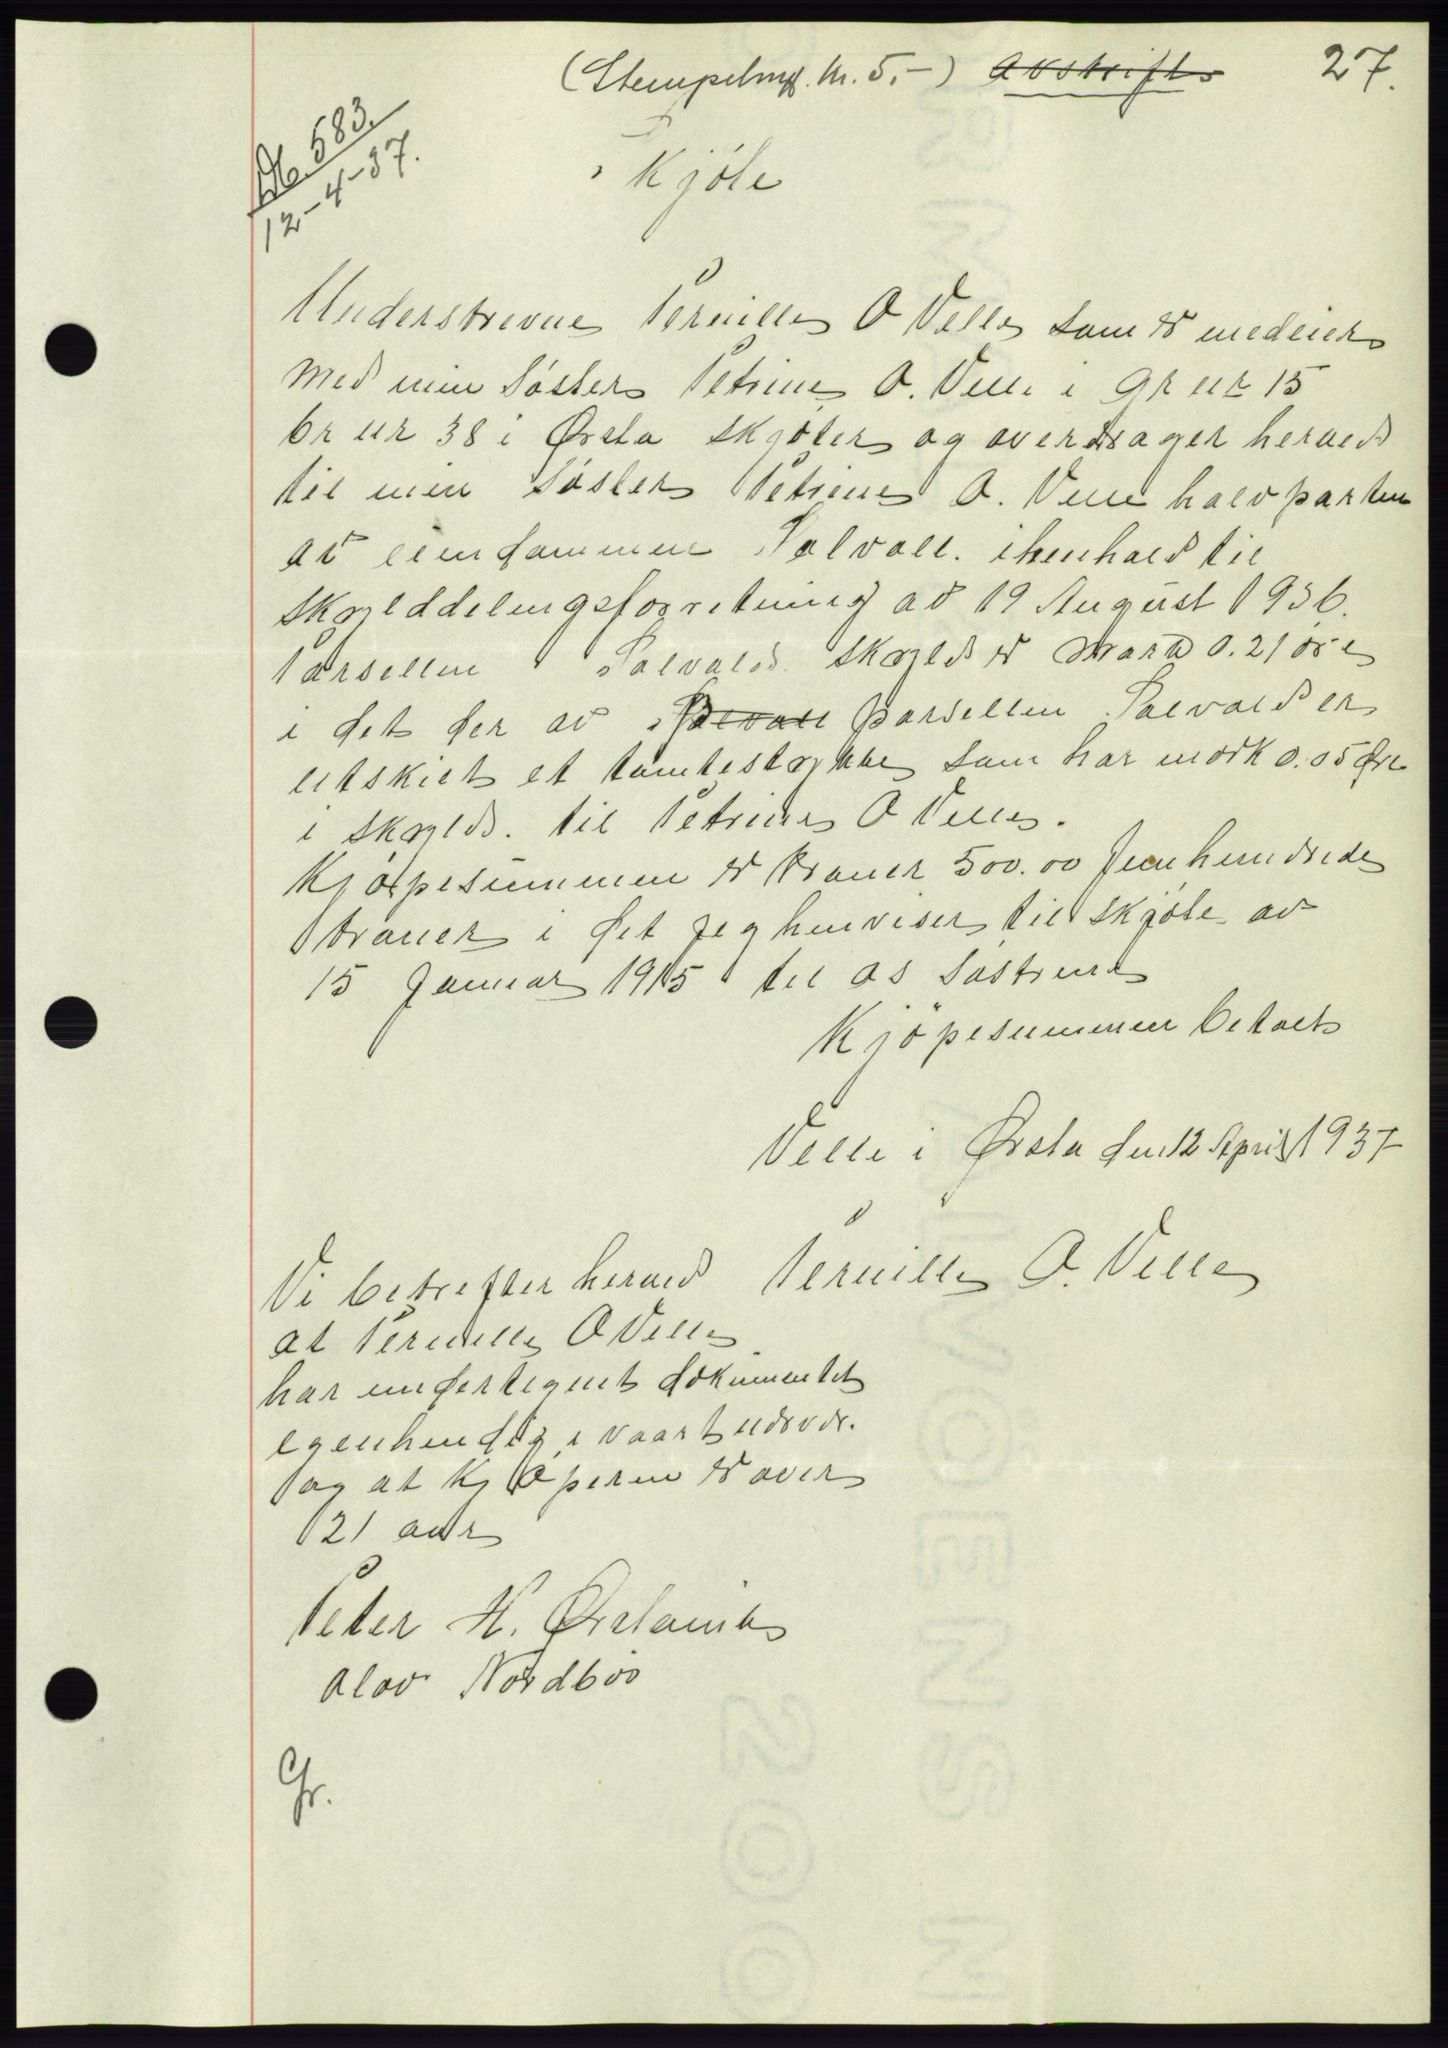 (Stempelmrk. kr. 5.-) Avskrift 27.
Db. 583.
12-4-37.
Skjøte
Underskrevne Pernille O Velle som er medeier
med min Søster Petrine O. Velle i gr nr 15
br nr 38 i Ørsta skjøter og overdrager herved
til min Søster Petrine O. Velle halvparten
av eiendommen Solvoll. ihenhold til
skylddelingsforretning av 19 August 1936.
Parsellen Solvold skyld er mark 0.21 øre
i det der av Solvoll parsellen Solvold er
utskiet et tomtestykke som har mork 0.05 Øre
i skyld. til Petrine O Velle.
Kjøpesummen er kroner 500.00 fem hundrede
kroner i det jeg henviser til skjøte av
15 Januar 1915 til os søstrene
Kjöpesummen betalt
Velle i Ørsta den 12 April 1937
Pernille O. Velle
Vi betrefter herved
at Pernille O Velle
har undertegnet dokumentet
egenhendig i vaart nærvær.
og at kjöperen er over
21 aar
Peter H. Ørstavik
Olov Nordböö
Gr.